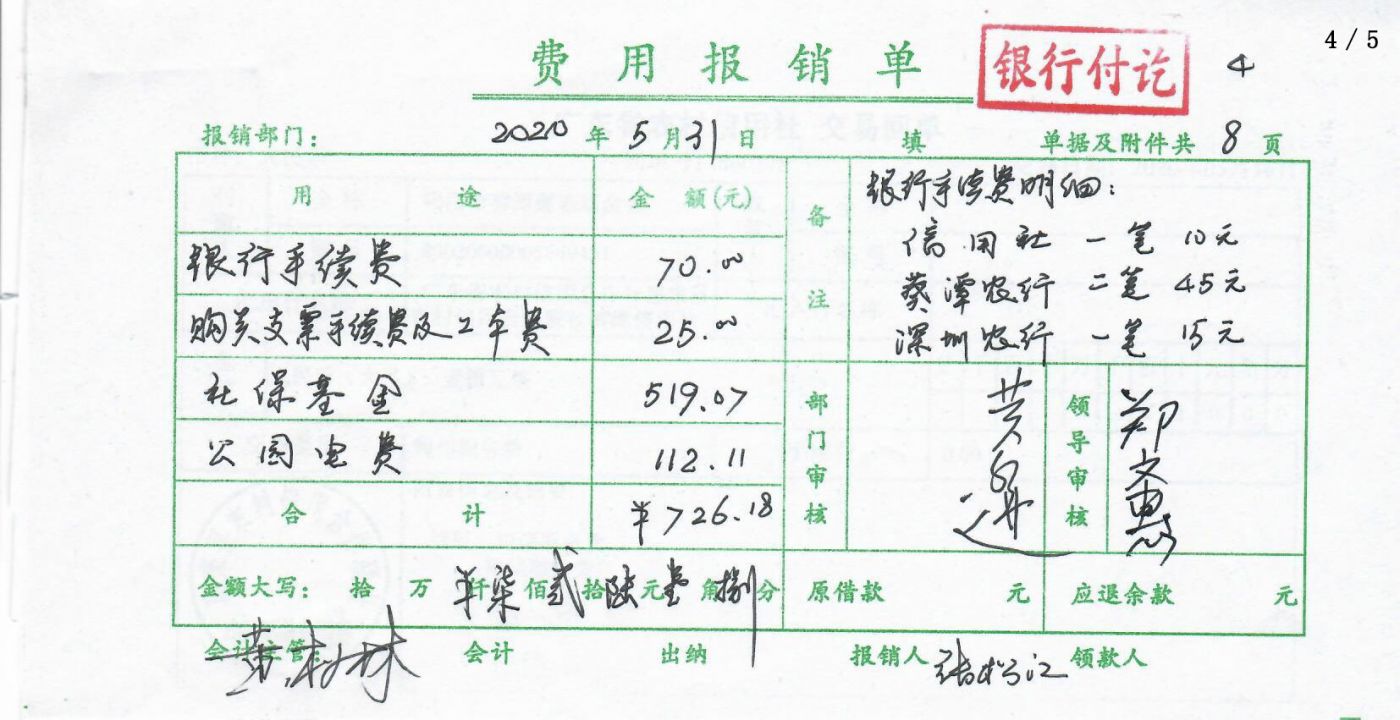 4 / 5
费用报销单 银行付讫 4
报销部门： 2020 年 5 月 31 日 填 单据及附件共 8 页
用途 金额(元) 备注
银行手续费明细：
信用社 一笔 10元
葵潭农行 二笔 45元
深圳农行 一笔 15元
银行手续费 70.00
购买支票手续费及工本费 25.00
社保基金 519.07
公园电费 112.11
合计 ¥726.18
部门审核 领导审核 郑文惠
金额大写： 拾 万 ¥ 仟 柒 佰 贰 拾 陆 元 壹 角 捌 分 原借款 元 应退余款 元
会计主管： 黄树林 会计 出纳 报销人 张松江 领款人